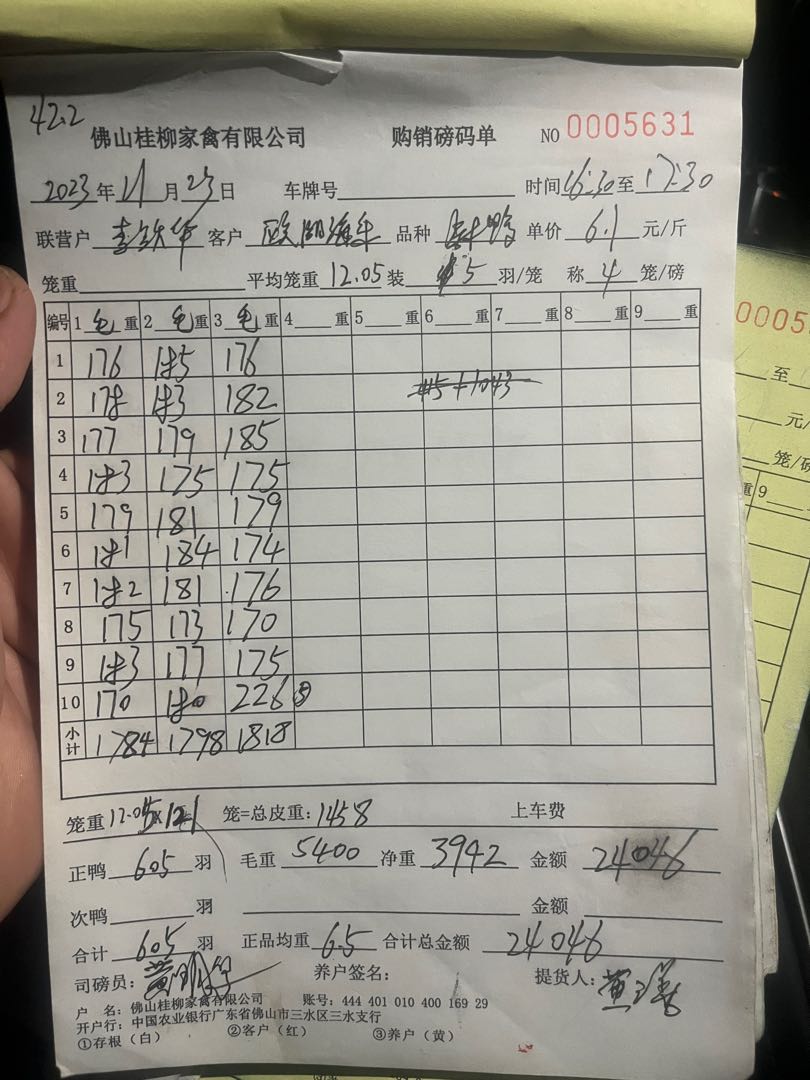 42.2
佛山桂柳家禽有限公司 购销磅码单 NO 0005631
2023年11月23日 车牌号 时间16:30至17:30
联营户 客户 品种 单价 6.1 元/斤
笼重 平均笼重 12.05 装 5 羽/笼 称 4 笼/磅
编号 1 毛 重 2 毛 重 3 毛 重 4 重 5 重 6 重 7 重 8 重 9 重
1 176 185 176
2 178 183 182
3 177 179 185
4 183 175 175
5 179 181 179
6 181 184 174
7 182 181 176
8 175 173 170
9 183 177 175
10 170 180 226 ⑤
小计 1784 1798 1818
笼重 12.05×121 笼=总皮重: 1458 上车费
正鸭 605 羽 毛重 5400 净重 3942 金额 24046
次鸭 羽 金额
合计 605 羽 正品均重 6.5 合计总金额 24046
司磅员: 养户签名: 提货人:
户 名: 佛山桂柳家禽有限公司 账号: 444 401 010 400 169 29
开户行: 中国农业银行广东省佛山市三水区三水支行
①存根（白） ②客户（红） ③养户（黄）
0005
至
元/
笼/磅
重 9